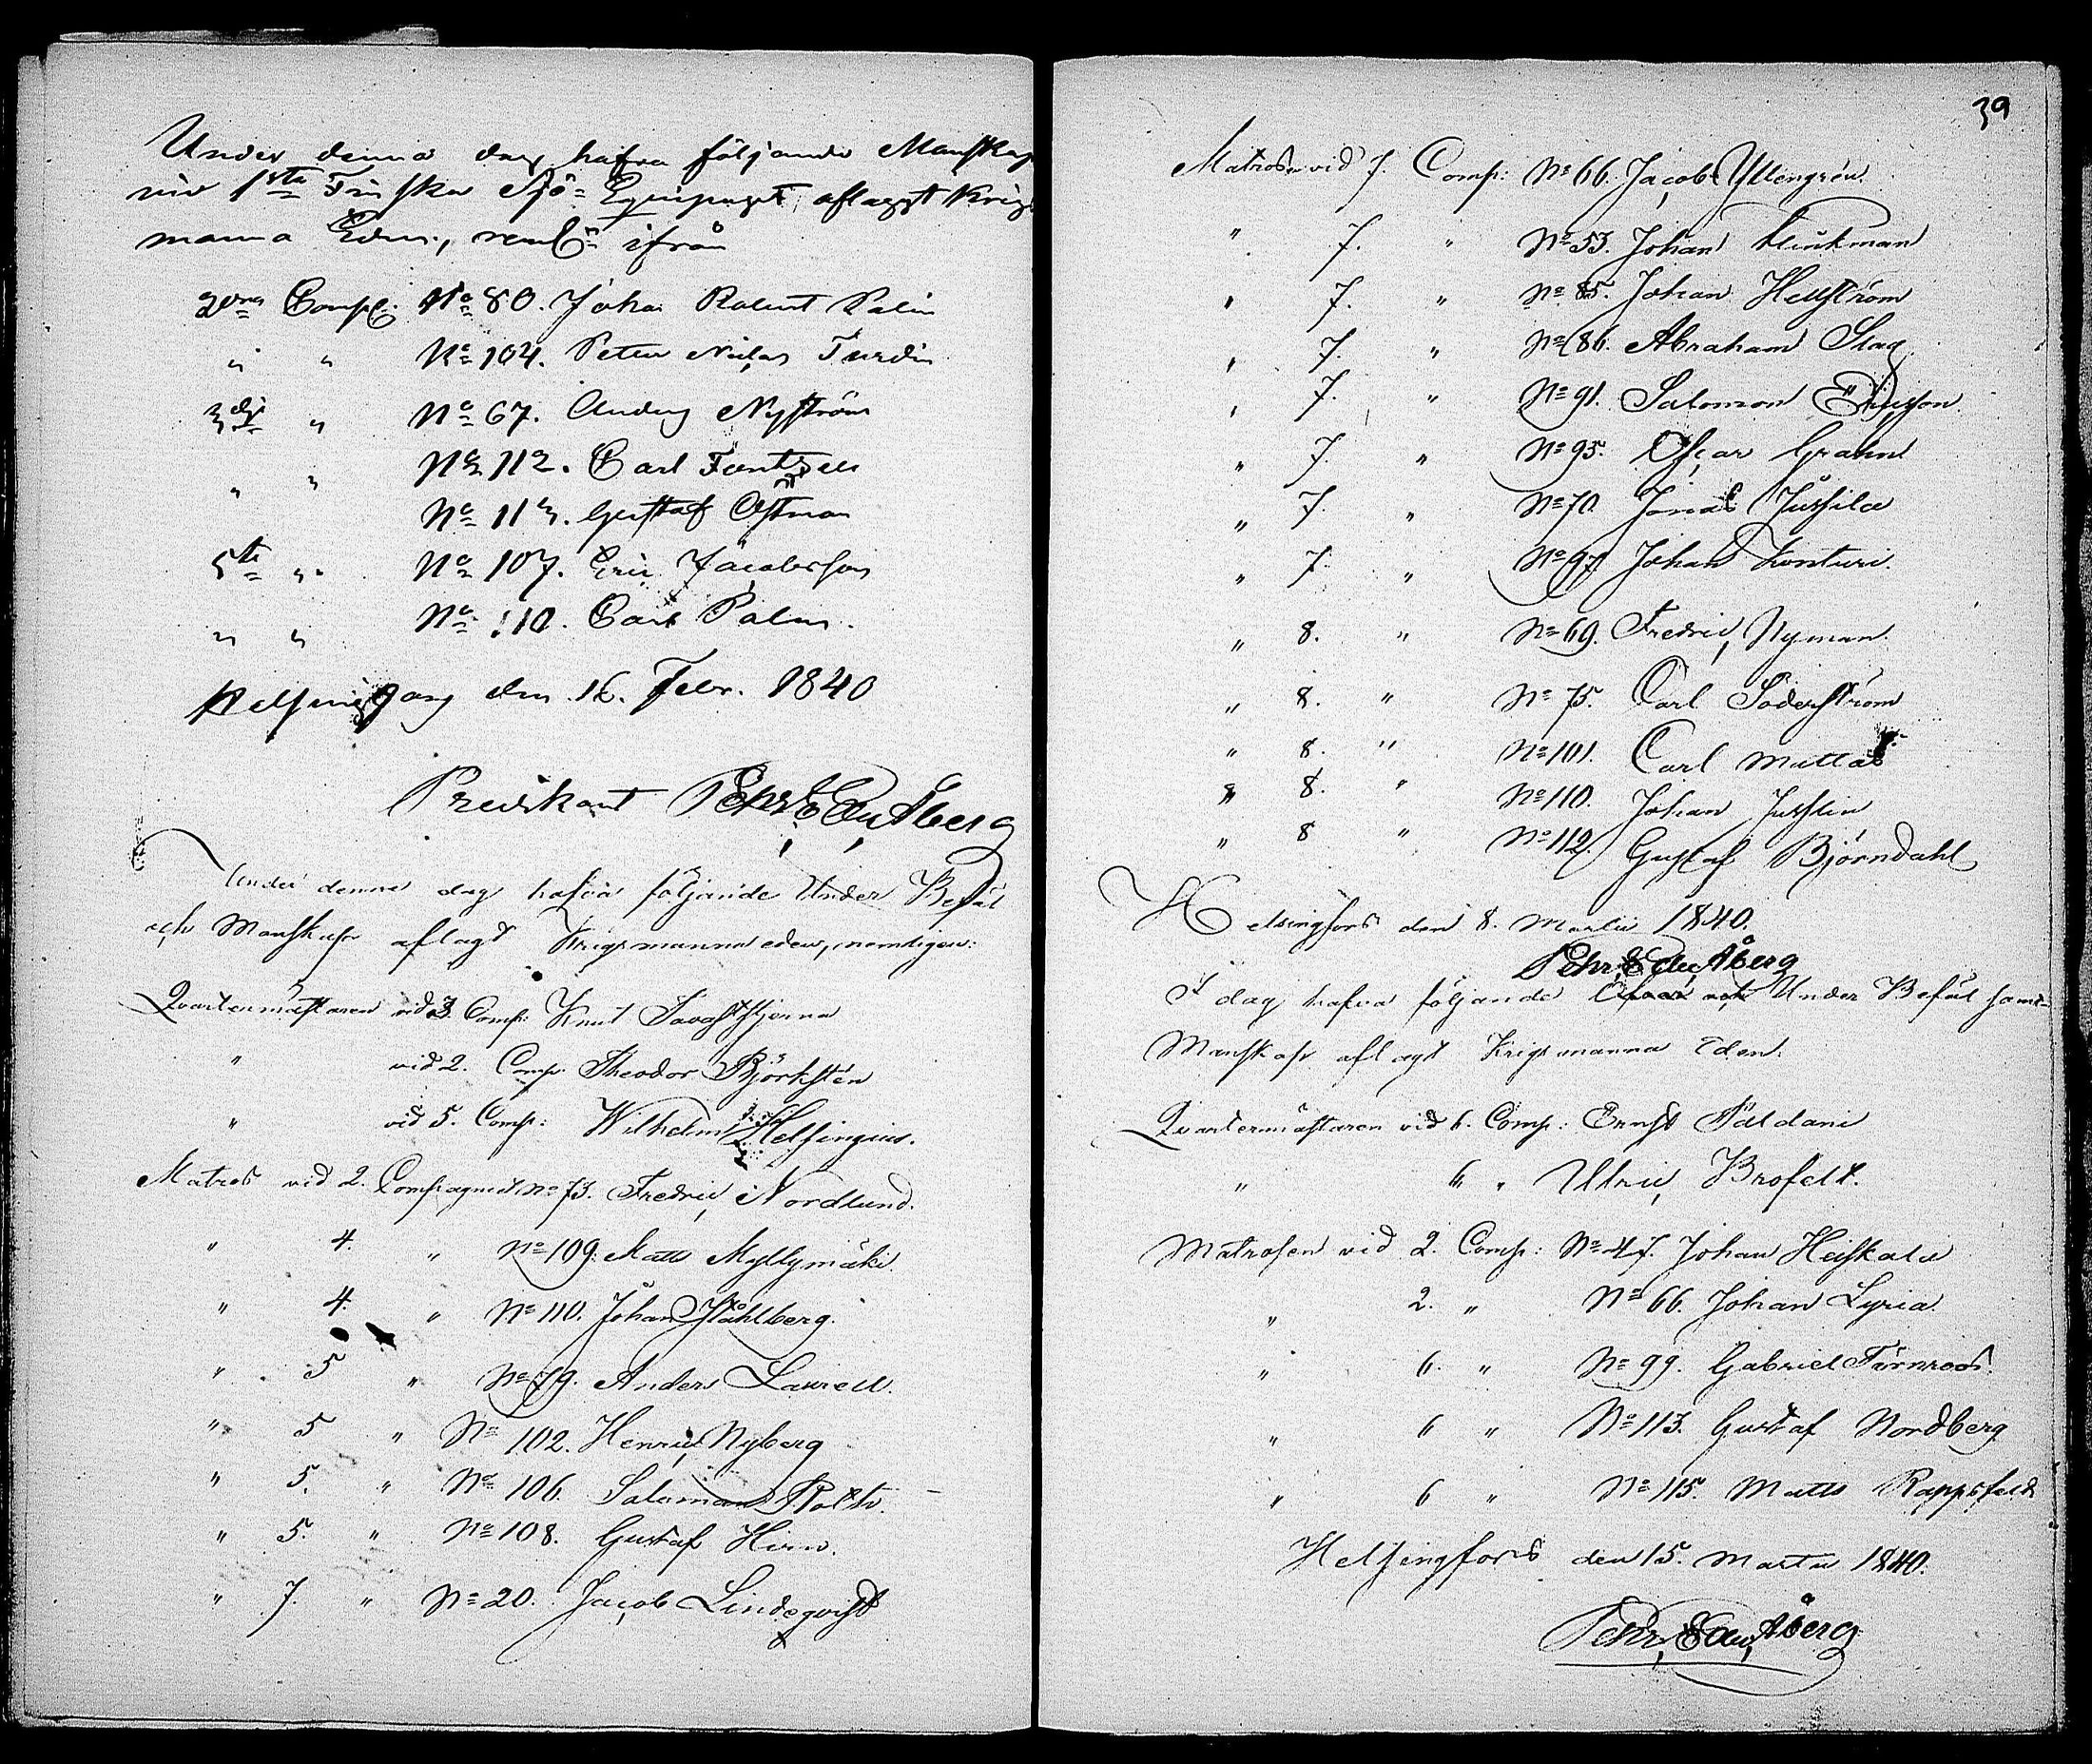 Under denna dag hafva följande Manskap
vid 1sta Finska Sjö-Equipaget aflaggt Krigs
manna Eden, ifrån
2dra Comp: No 80. Johan Robert Palin
" " No 104. Petter Niclas
3dje " No 67. Anders Nyström
" " No 112. Carl
No 113. Gustaf Östman
5te " No 107. Eric Jacobsson
" " No 110. Carl Palm.
Helsingfors den 16. Febr. 1840
Predikant Pehr Edv Åberg
Under denna dag hafva följande Under Befäl
och Manskap aflagt Krigsmanna eden, nemligen:
Qvartermästaren vid 3. Comp: Knut Savaststjerna
" vid 2. Comp. Theodor Björkstén
" vid 5. Comp: Wilhelm Helsingius.
Matros vid 2. Compagniet No 73. Fredric Nordlund.
" 4. " No 109. Matts Myllymäki.
" 4. " No 110. Johan Ståhlberg.
" 5 " No 79. Anders Laurell.
" 5 " No 102. Henric Nyberg
" 5. " No 106. Salomon Roth.
" 5. " No 108. Gustaf Hirn.
" 7. " No 20. Jacob Lindeqvist
39
Matrosen vid 7. Comp: No 66. Jacob Yllengrén.
" 7. " No 53. Johan Klinkman
" 7. " No 85. Johan Hellström
" 7. " No 86. Abraham Skag
" 7. " No 91. Salomon Ericsson
" 7. " No 95. Oscar Grahn
" 7. " No 70. Jonas Jussila
" 7. " No 97. Johan Konturi.
" 8. " No 69. Fredric Nyman.
" 8. " No 75. Carl Söderström
" 8. " No 101. Carl Mattas
" 8. " No 110. Johan Juslin
" 8 " No 112. Gustaf Björndahl
Helsingfors den 8. Martii 1840.
Pehr Edv Åberg
I dag hafva följande Under Befäl samt
Manskap aflagt Krigsmanna Eden.
Qvartermästaren vid 6. Comp: Ernst Paldani
" 6 " Ulric Brofelt.
Matrosen vid 2. Comp: No 47. Johan Heiskala
" 2. " No 66. Johan Lyria.
" 6. " No 99. Gabriel Törnroos.
" 6 " No 113. Gustaf Nordberg
" 6 " No 115. Matts Rappsfeld
Helsingfors den 15. Martii 1840.
Pehr Edv Åberg